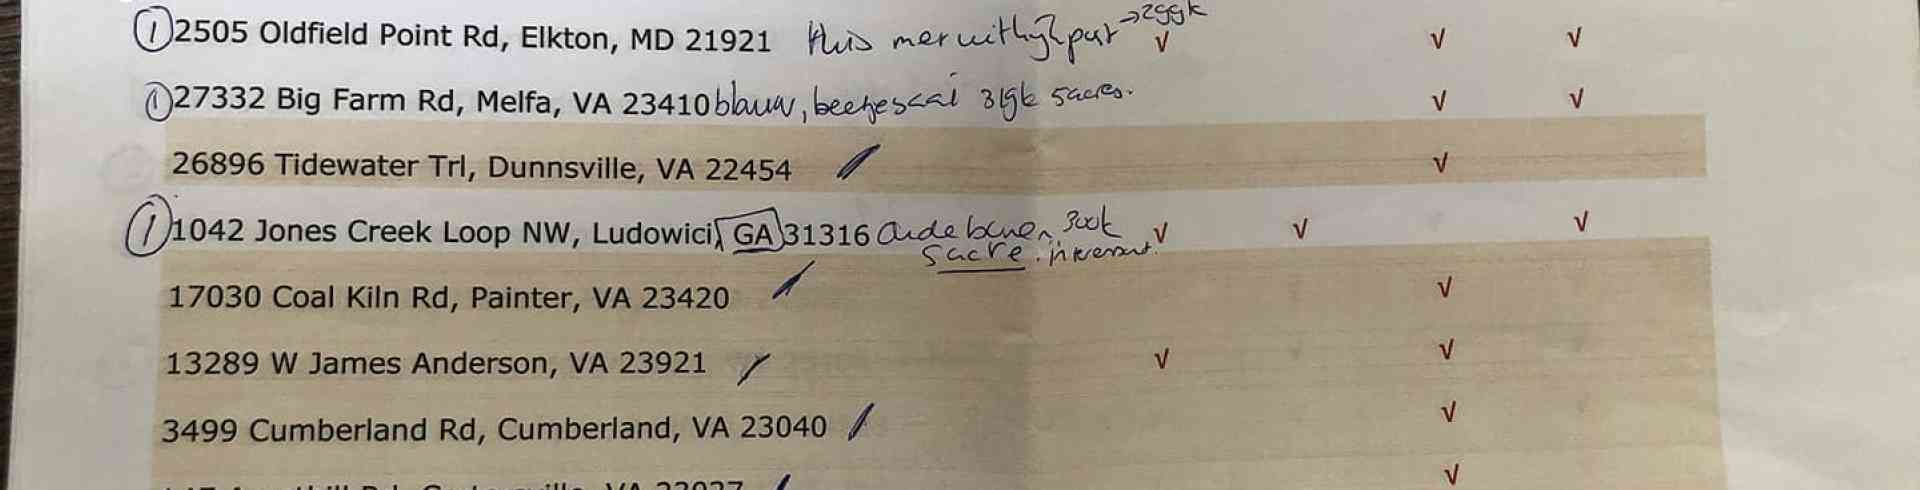 ① 2505 Oldfield Point Rd, Elkton, MD 21921 √ √ √
① 27332 Big Farm Rd, Melfa, VA 23410 blauw, 5acres. √ √
26896 Tidewater Trl, Dunnsville, VA 22454 √
① 1042 Jones Creek Loop NW, Ludowici, GA 31316 300k √ √ √
5acre.
17030 Coal Kiln Rd, Painter, VA 23420 √
13289 W James Anderson, VA 23921 √ √
3499 Cumberland Rd, Cumberland, VA 23040 √
√